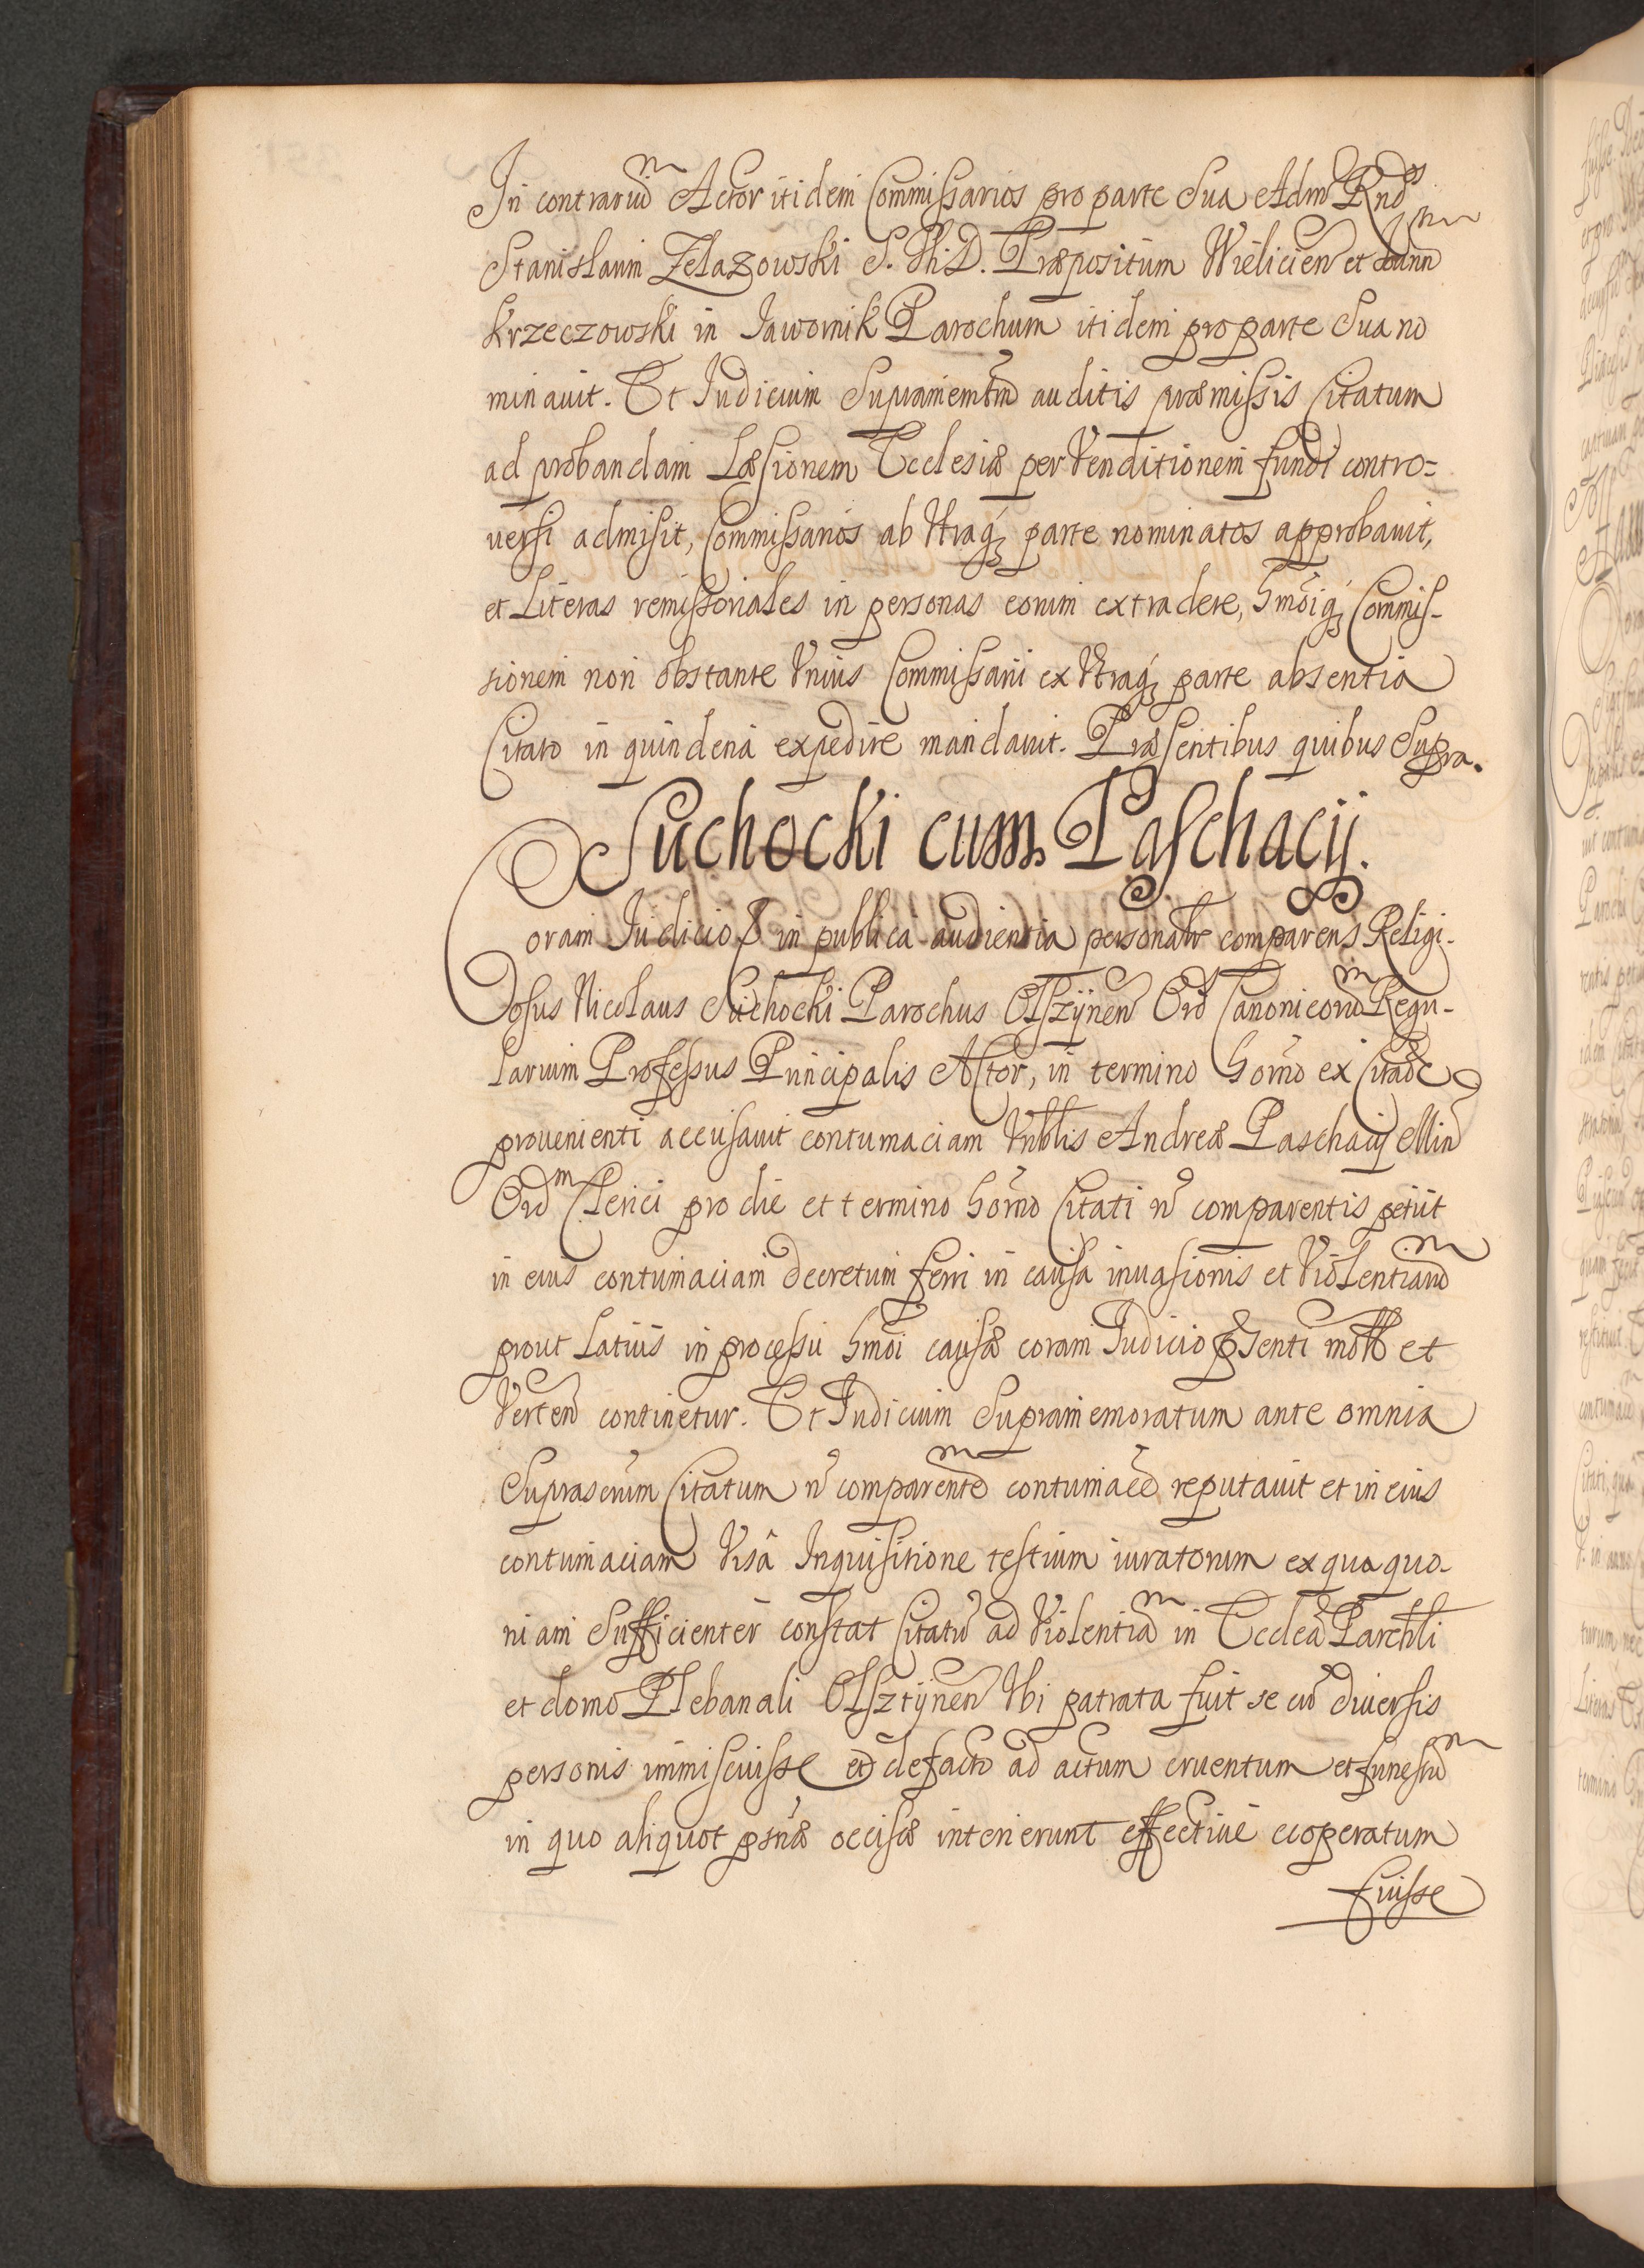 In contrariũ Actor itidem Commissarios pro parte Sua Adm Rnd͠os
Stanislaum Zelazowski S. Th. D. Præpositum Wielicien͠ et Joann͠
Krzeczowski in Jawornik Parochum itidem pro parte Sua no
minauit. Et Judicium Supramem͠tm auditis præmissis Citatum
ad probandam Læsionem Ecclesiæ per Venditionem fundi contro=
uersi admisit, Commissarios ab Vtraq; parte nominatos approbauit,
et Literas remissoriales in personas eorum extradere, hm͠oiq; Commis-
sionem non obstante Vnius Commissarij ex Vtraq; parte absentia
Citato in quindena expedire mandauit. Præsentibus quibus Supra.
Suchocki cum Paschacij.
Coram Judicio in publica audientia personalr͠ comparens Religi-
osus Nicolaus Suchocki Parochus Olsztÿnen͠ Ord͠ Canonicorũ Regu-
larium Professus Principalis Actor, in termino hor͠no ex Citaõe
prouenienti accusauit contumaciam Vn͠blis Andreæ Paschacij Min͠
Ord͠m Clerici pro die et termino hor͠no Citati n͠ comparentis petijt
in eius contumaciam decretum ferri in causa inuasionis et Violentiarũ
prout Latius in processu hm͠oi causæ coram Judicio p͠senti mot͠æ et
Verten͠ continetur. Et Judicium Supramemoratum ante omnia
Suprascr͠tum Citatum n͠ comparentẽ contumacẽ reputauit et in eius
contumaciam Visâ Inquisitione testium iuratorum ex qua quo-
niam Sufficienter constat Citatũ ad Violentiã in Eccle͠a Parch͠li
et domo Plebanali Olsztÿnen͠ Vbi patrata fuit se cũ diuersis
personis immiscuisse et defacto ad actum cruentum et funestũ
in quo aliquot p͠snæ occisæ interierunt effectiuè cooperatum
fuisse